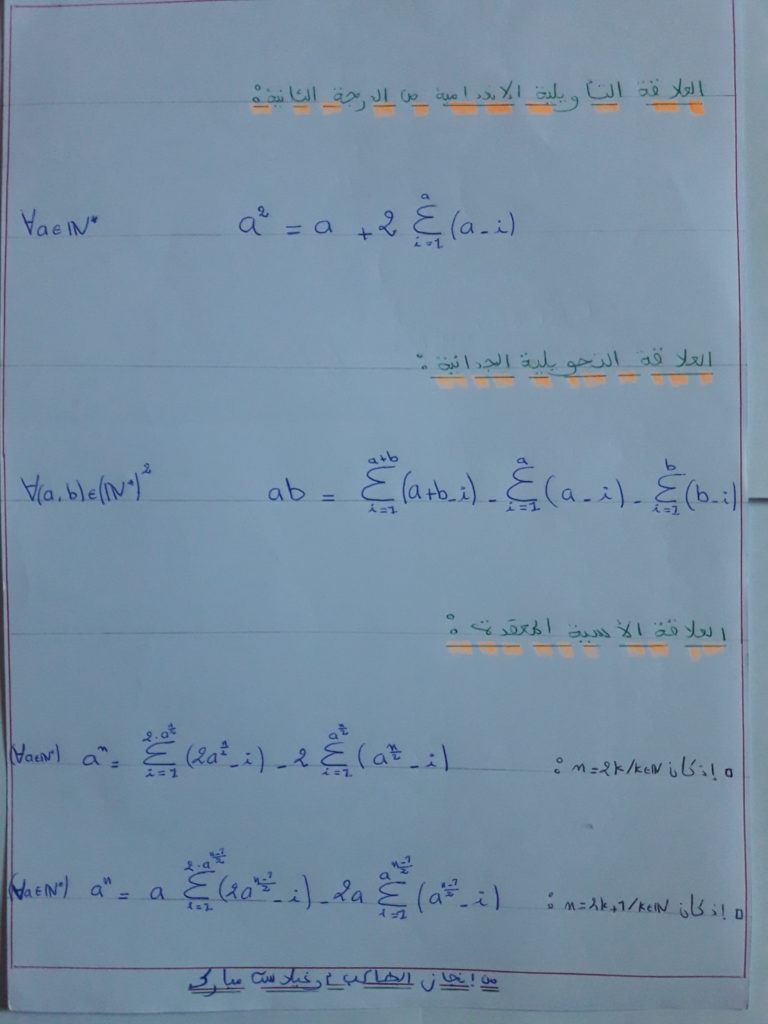 العلاقة التأويلية الانعدامية من الدرجة الثانية :
∀a∈ℕ* a² = a + 2 Σ_{i=1}^{a} (a-i)
العلاقة التحويلية الجدائية :
∀(a,b)∈(ℕ*)² ab = Σ_{i=1}^{a+b} (a+b-i) - Σ_{i=1}^{a} (a-i) - Σ_{i=1}^{b} (b-i)
العلاقة الأسية المعقدة :
▫ إذ كان n=2k/k∈ℕ :
(∀a∈ℕ*) aⁿ = Σ_{i=1}^{2·a^{n/2}} (2a^{n/2}-i) - 2 Σ_{i=1}^{a^{n/2}} (a^{n/2}-i)
▫ إذ كان n=2k+1/k∈ℕ :
(∀a∈ℕ*) aⁿ = a Σ_{i=1}^{2·a^{(n-1)/2}} (2a^{(n-1)/2}-i) - 2a Σ_{i=1}^{a^{(n-1)/2}} (a^{(n-1)/2}-i)
من إنجاز الطالب مبارك